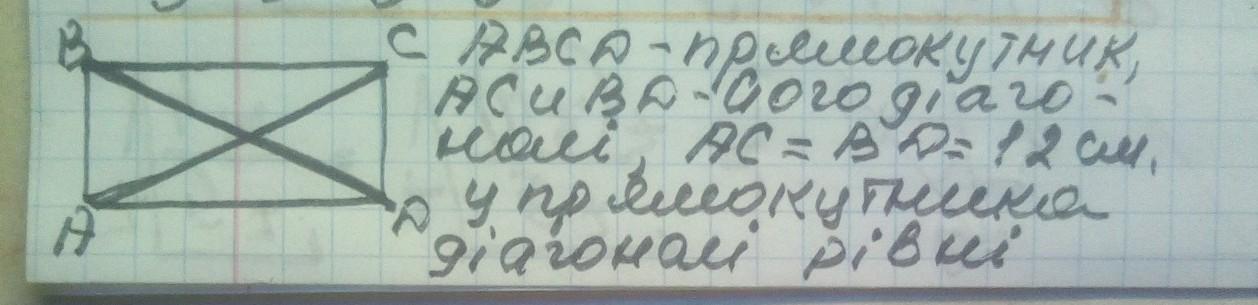 B
C
A
D
ABCD - прямокутник,
AC и BD - його діаго-
налі, AC = BD = 12 см.
У прямокутника
діагоналі рівні